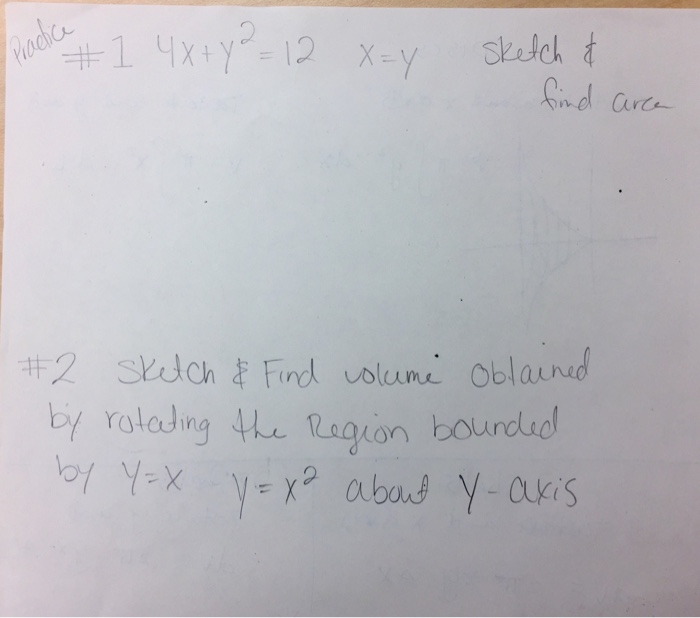 Practice
#1 4x+y²=12 x=y Sketch &
find area
#2 Sketch & Find volume obtained
by rotating the Region bounded
by y=x y=x² about y-axis